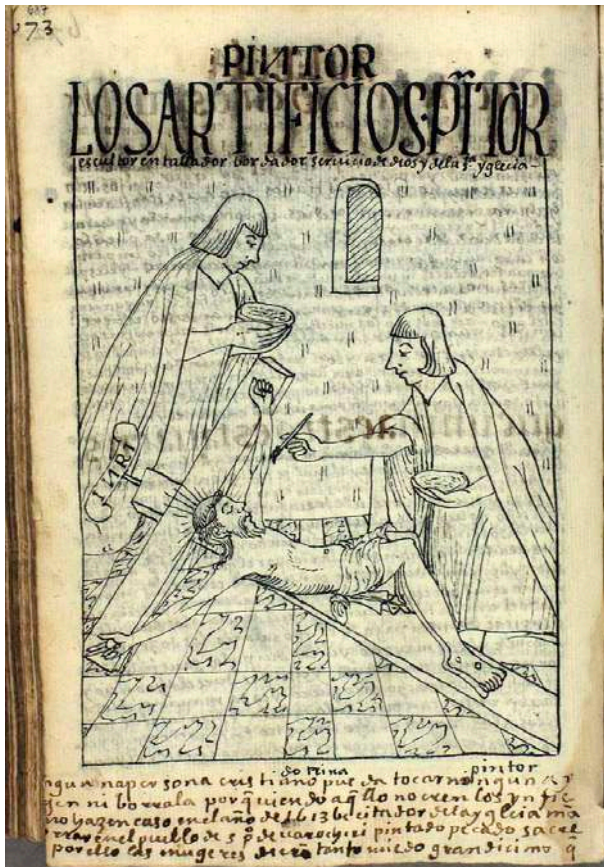 687
73
PINTOR
LOS ARTIFICIOS·PĪTOR
escultor entallador bordador servicio de dios y de la sta yglecia
INRI
dotrina
pintor
nguna persona cristiano pueda tocar
gen ni borralla porq̄ uiendo aq̄llo no cren los ynfie
no hazen caso en el año de 1613 becitador de la yglecia
en el pueblo de s. po de uarochiri pintado pecado sacol
por ello las mugeres tanto miedo grandicimo q